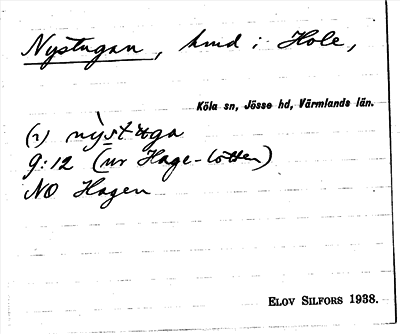 Nystugan, hmd i Hole,
Köla sn, Jösse hd, Värmlands län.
(r) nỳstuga
9:12 (ur Hage-lotten)
NO Hagen
ELOV SILFORS 1938.